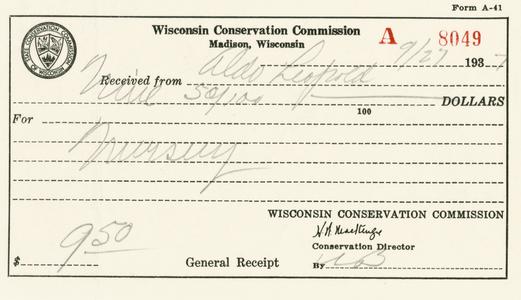 Form A-41
STATE CONSERVATION COMMISSION OF WISCONSIN
Wisconsin Conservation Commission
Madison, Wisconsin
A 8049
9/27 193
Received from Aldo Leopold
Nine 50/100 DOLLARS
100
For
Nursery
WISCONSIN CONSERVATION COMMISSION
H. W. MacKenzie
Conservation Director
$ 9.50
General Receipt
By